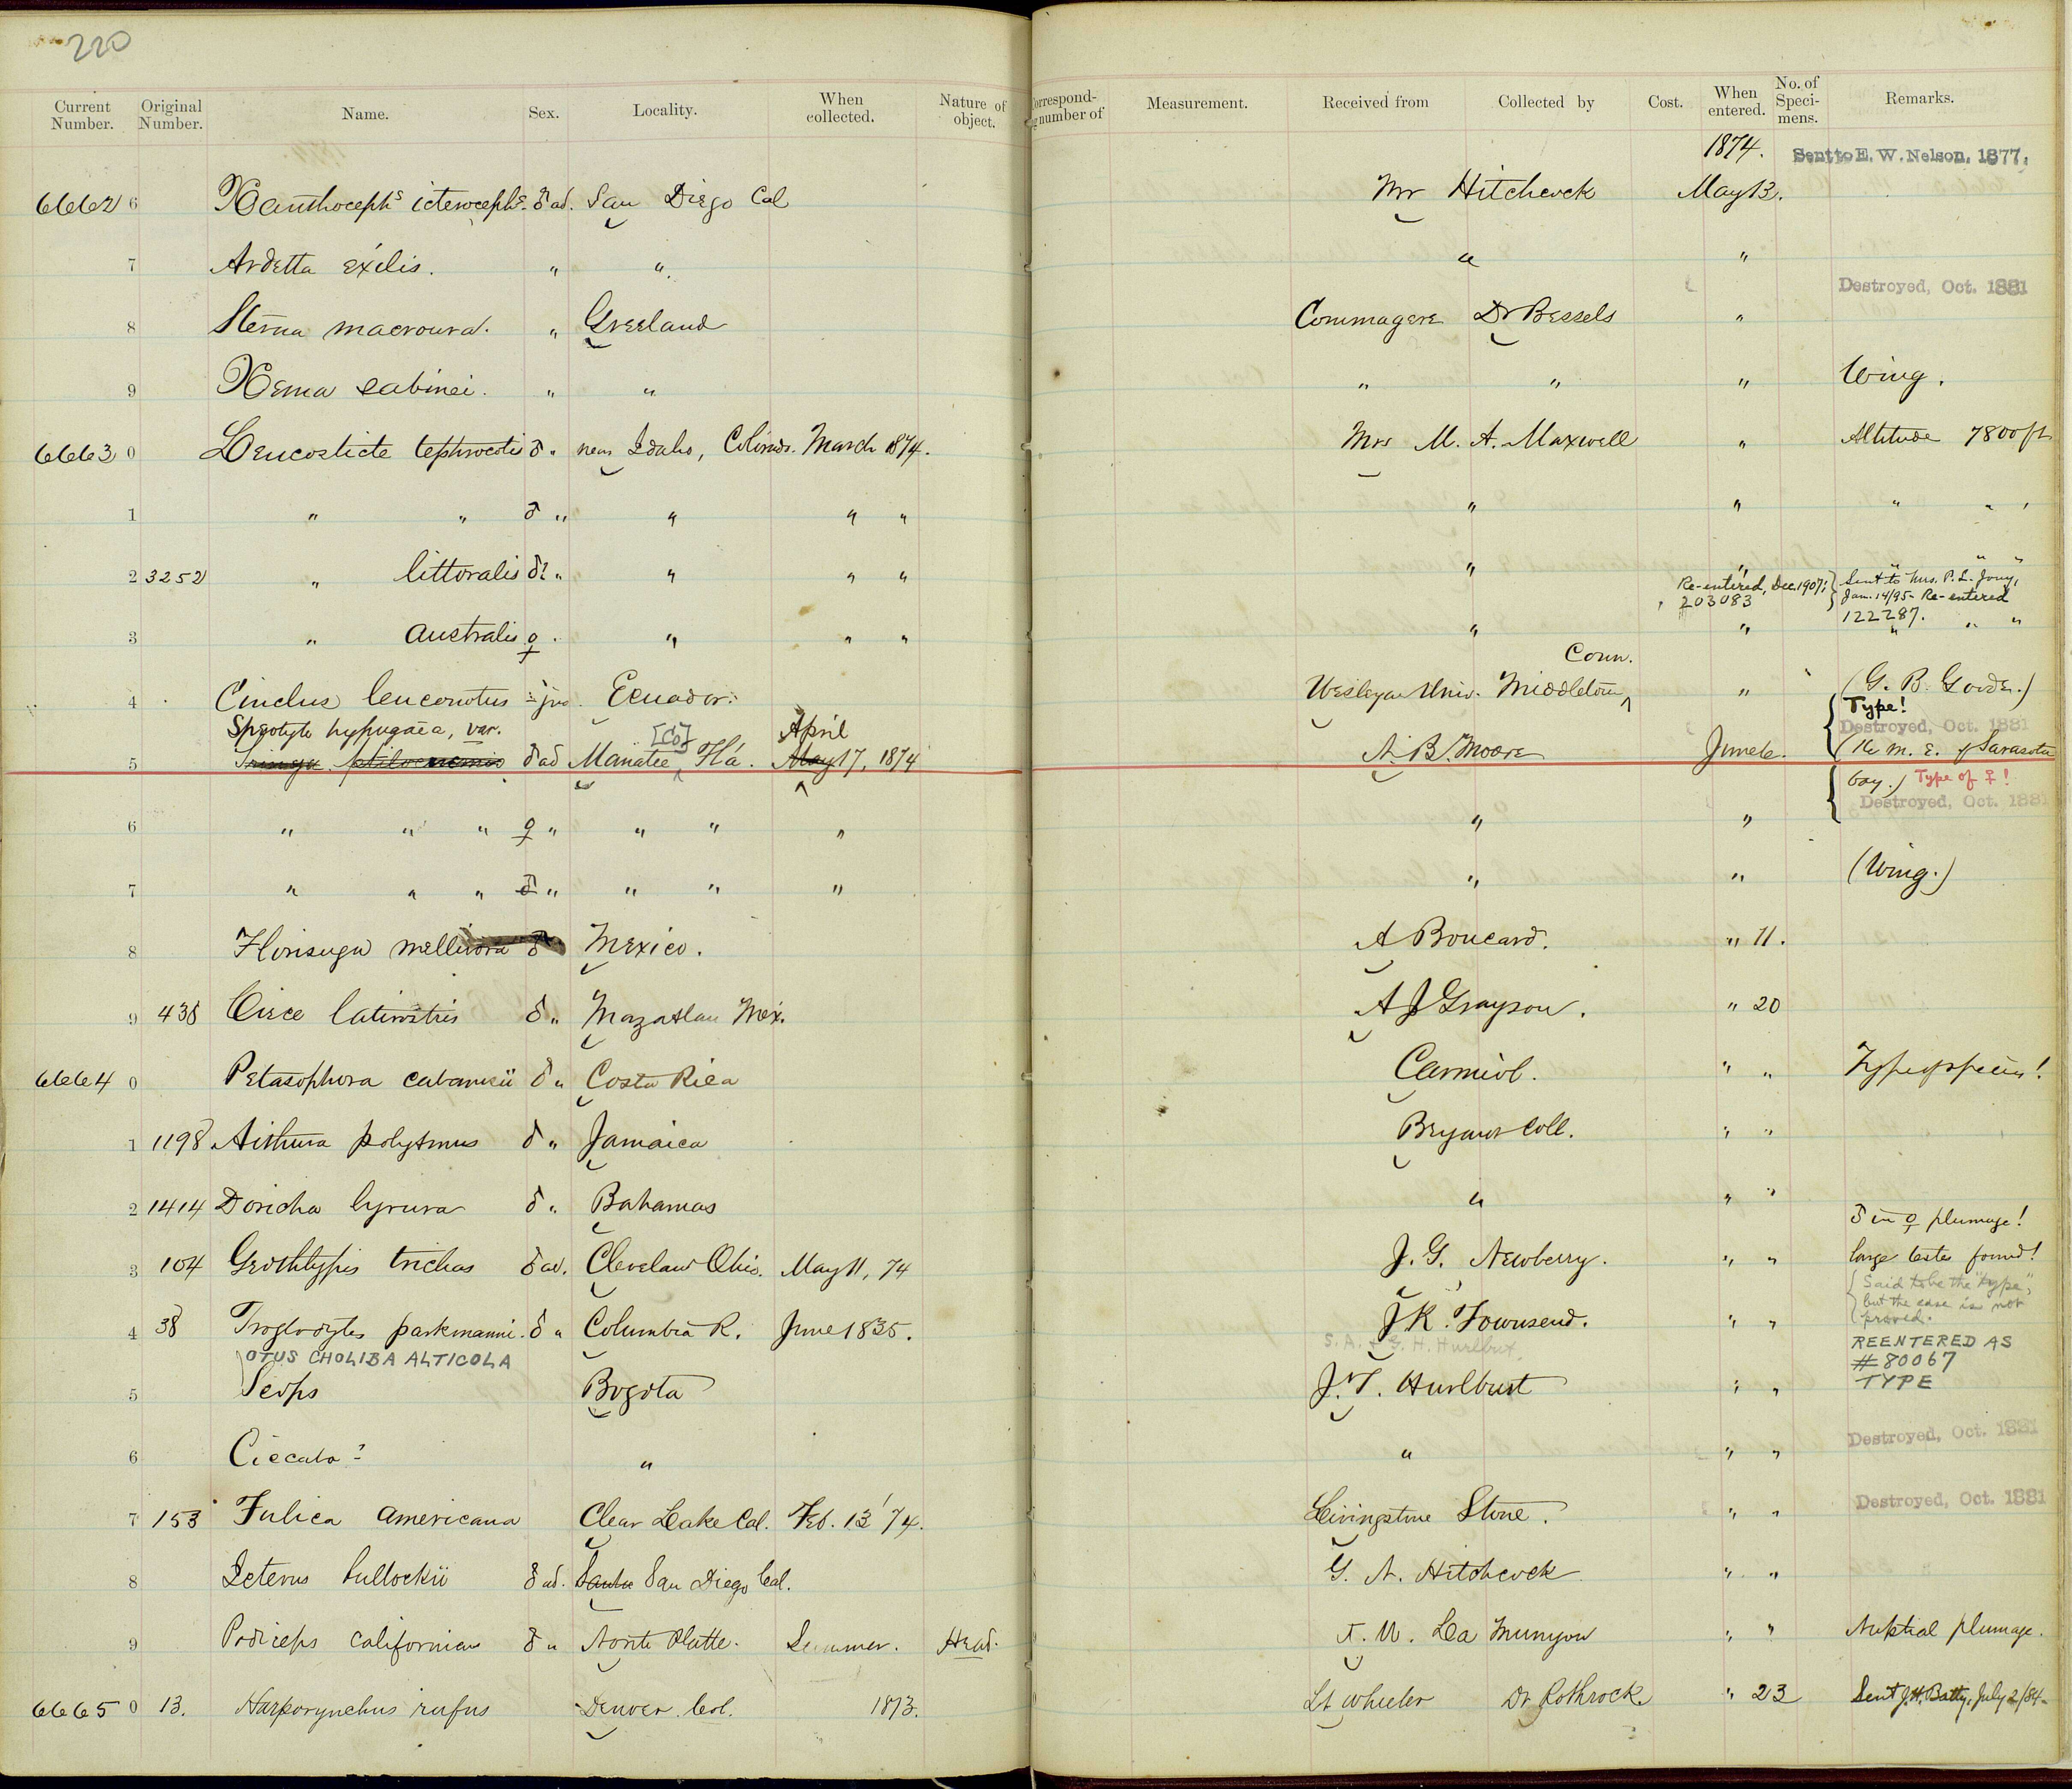 220
Current Number. Original Number. Name. Sex. Locality. When collected. Nature of object. Correspond- number of Measurement. Received from Collected by Cost. When entered. No. of Speci- mens. Remarks.
1874. Sent to E. W. Nelson, 1877,
6662 6 Xanthocephs icterocephs. ♂ ad. San Diego Cal Mr Hitchcock May 13.
7 Ardetta exilis. " " " "
Destroyed, Oct. 1881
8 Sterna macroura. " Greeland Commagere Dr Bessels "
9 Xema sabinei. " " " " " Wing.
6663 0 Leucosticte tephrocotis ♂ " near Idaho, Colorado. March 1874. Mrs M. A. Maxwell " Altitude 7800 ft
1 " " ♂ " " " " " " " " "
2 3252 " littoralis ♂? " " " " " " " " "
Re-entered, Dec. 1907; 203083 Sent to Mus. P. L. Jouy, Jan. 14/95- Re-entered 122287.
3 " australis ♀ " " " " " " " " "
Conn.
4 Cinclus leuconotus juv. Ecuador. Wesleyan Univ. Middletown " (G. B. Goode.)
Speotyto hypugaea, var. [Co] April Type!
Destroyed, Oct. 1881
5 Tringa ptilocnemis ♂ ad Manatee Fla. May 17, 1874 N. B. Moore June 6. (Re M. E. of Sarasota
bay.) Type of ♀!
Destroyed, Oct. 1881
6 " " " ♀ " " " " " "
7 " " " ♂ " " " " " " (Wing.)
8 Florisuga mellivora ♂ Mexico. A Boucard. " 11.
9 438 Circe latirostris ♂ " Mazatlan Mex. A J Grayson. " 20
6664 0 Petasophora cabanisii ♂ " Costa Rica Carmiol. " " Type of species!
1 1198 Aithura polytmus ♂ " Jamaica Bryant Coll. " "
2 1414 Doricha lyrura ♂ " Bahamas " " "
♂ in ♀ plumage!
3 104 Geothlypis trichas ♂ ad. Cleveland Ohio. May 11, 74 J. G. Newberry. " " large testes found!
{Said to be the "type", but the case is not proved.
4 38 Troglodytes parkmanni. ♂ " Columbia R. June 1835. J K. Townsend. " "
OTUS CHOLIBA ALTICOLA S. A. & G. H. Hurlbut. REENTERED AS #80067 TYPE
5 Scops Bogota J. T. Hurlburt " "
Destroyed, Oct. 1881
6 Ciccaba? " " " "
Destroyed, Oct. 1881
7 153 Fulica americana Clear Lake Cal. Feb. 13 '74. Livingstone Stone. " "
8 Icterus bullockii ♂ ad. Santa San Diego Cal. G. N. Hitchcock " "
9 Podiceps californicus ♂ " North Platte. Summer. Head. La Munyon " " Nuptial plumage.
6665 0 13. Harporynchus rufus Denver. Col. 1873. Lt Wheeler Dr Rothrock. " 23 Sent J. H. Batty, July 2/84-